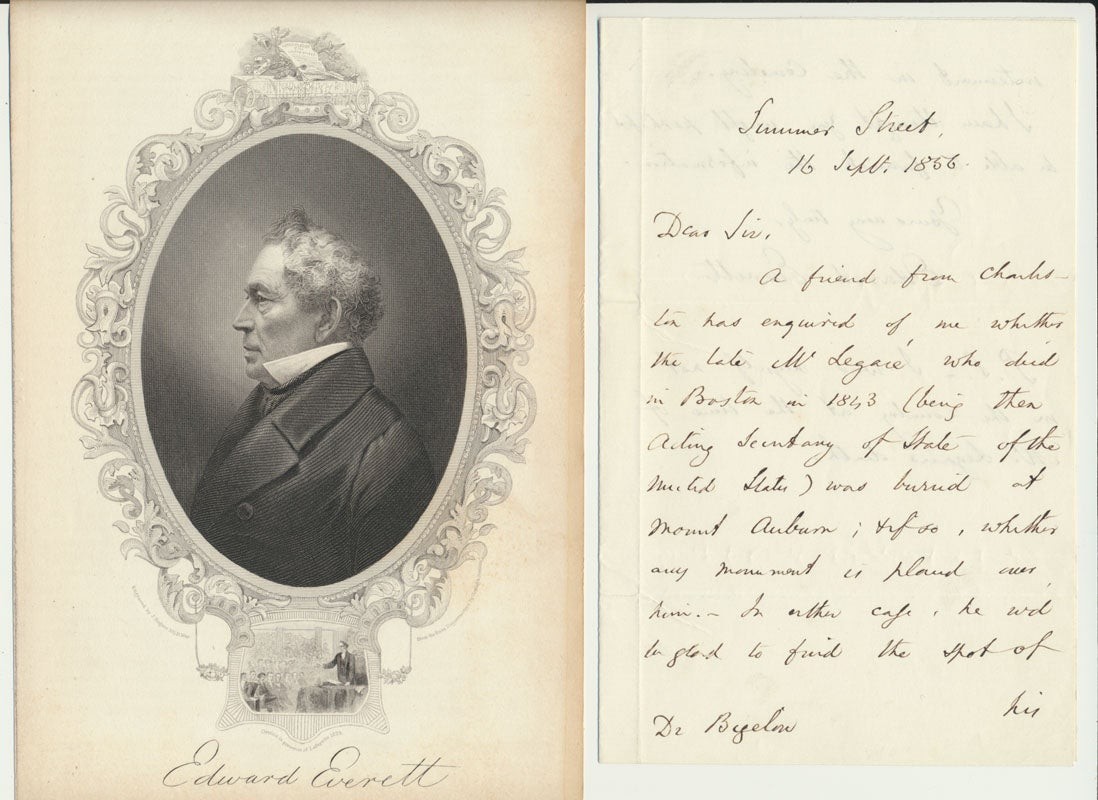 Edward Everett
Summer Street,
16 Sept. 1856.
Dear Sir,
A friend from Charles-
ton has enquired of me whether
the late Mr Legaré, who died
in Boston in 1843 (being then
Acting Secretary of State of the
United States) was buried at
Mount Auburn; & if so, whether
any monument is placed over
him.– In either case, he wd
be glad to find the spot of
his
Dr Bigelow